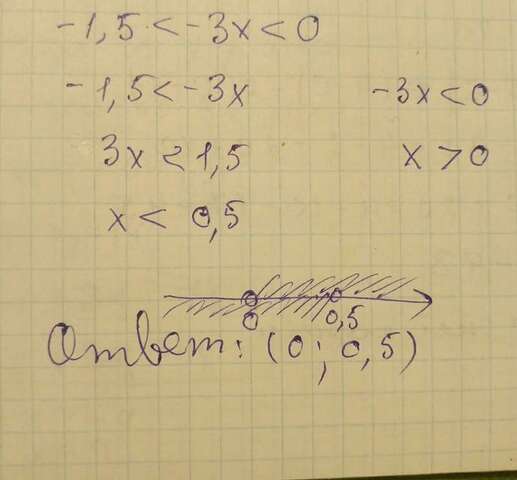 -1,5 < -3x < 0
-1,5 < -3x -3x < 0
3x < 1,5 x > 0
x < 0,5
0 0,5
Ответ: (0; 0,5)